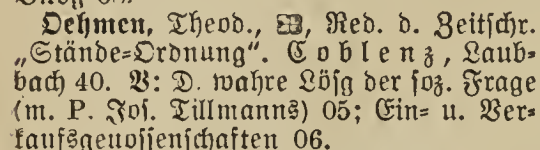 Oehmen, Theod., Red. d. Zeitschr.
„Stände=Ordnung“. Coblenz, Laub-
bach 40. V: D. wahre Lösg der soz. Frage
(m. P. Jos. Tillmanns) 05; Ein= u. Ver-
kaufsgenossenschaften 06.